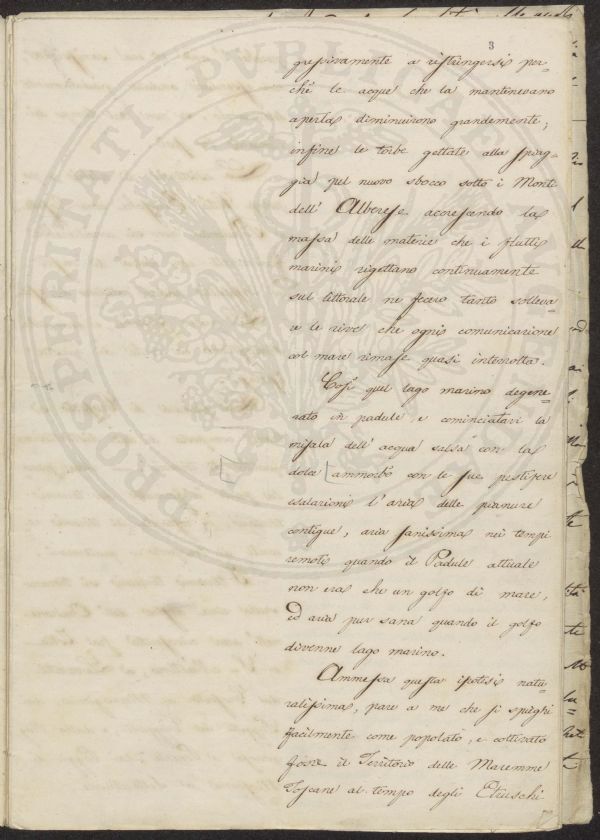 3
gressivamente a ristringersi per-
chè le acque che la mantenevano
aperta diminuirono grandemente;
infine le torbe gettate alla spiag-
gia pel nuovo sbocco sotto i Monti
dell' Alberese acrescendo la
massa delle materie che i flutti
marini rigettano continuamente
sul littorale ne fecero tanto solleva-
re le rive che ogni comunicazione
col mare rimase quasi interrotta.
Così quel lago marino degene-
rato in padule, e cominciatavi la
misala dell' acqua salsa con la
dolce ammorbò con le sue pestifere
esalazioni l' aria delle pianure
contigue, aria sanissima nei tempi
remoti quando il Padule attuale
non era che un golfo di mare,
ed aria pur sana quando il golfo
divenne lago marino.
Ammessa questa ipotesi natu-
ralissima, pare a me che si spieghi
facilmente come popolato, e coltivato
fosse il Territorio delle Maremme
Toscane al tempo degli Etruschi
PROSPERITATI PVBLICAE